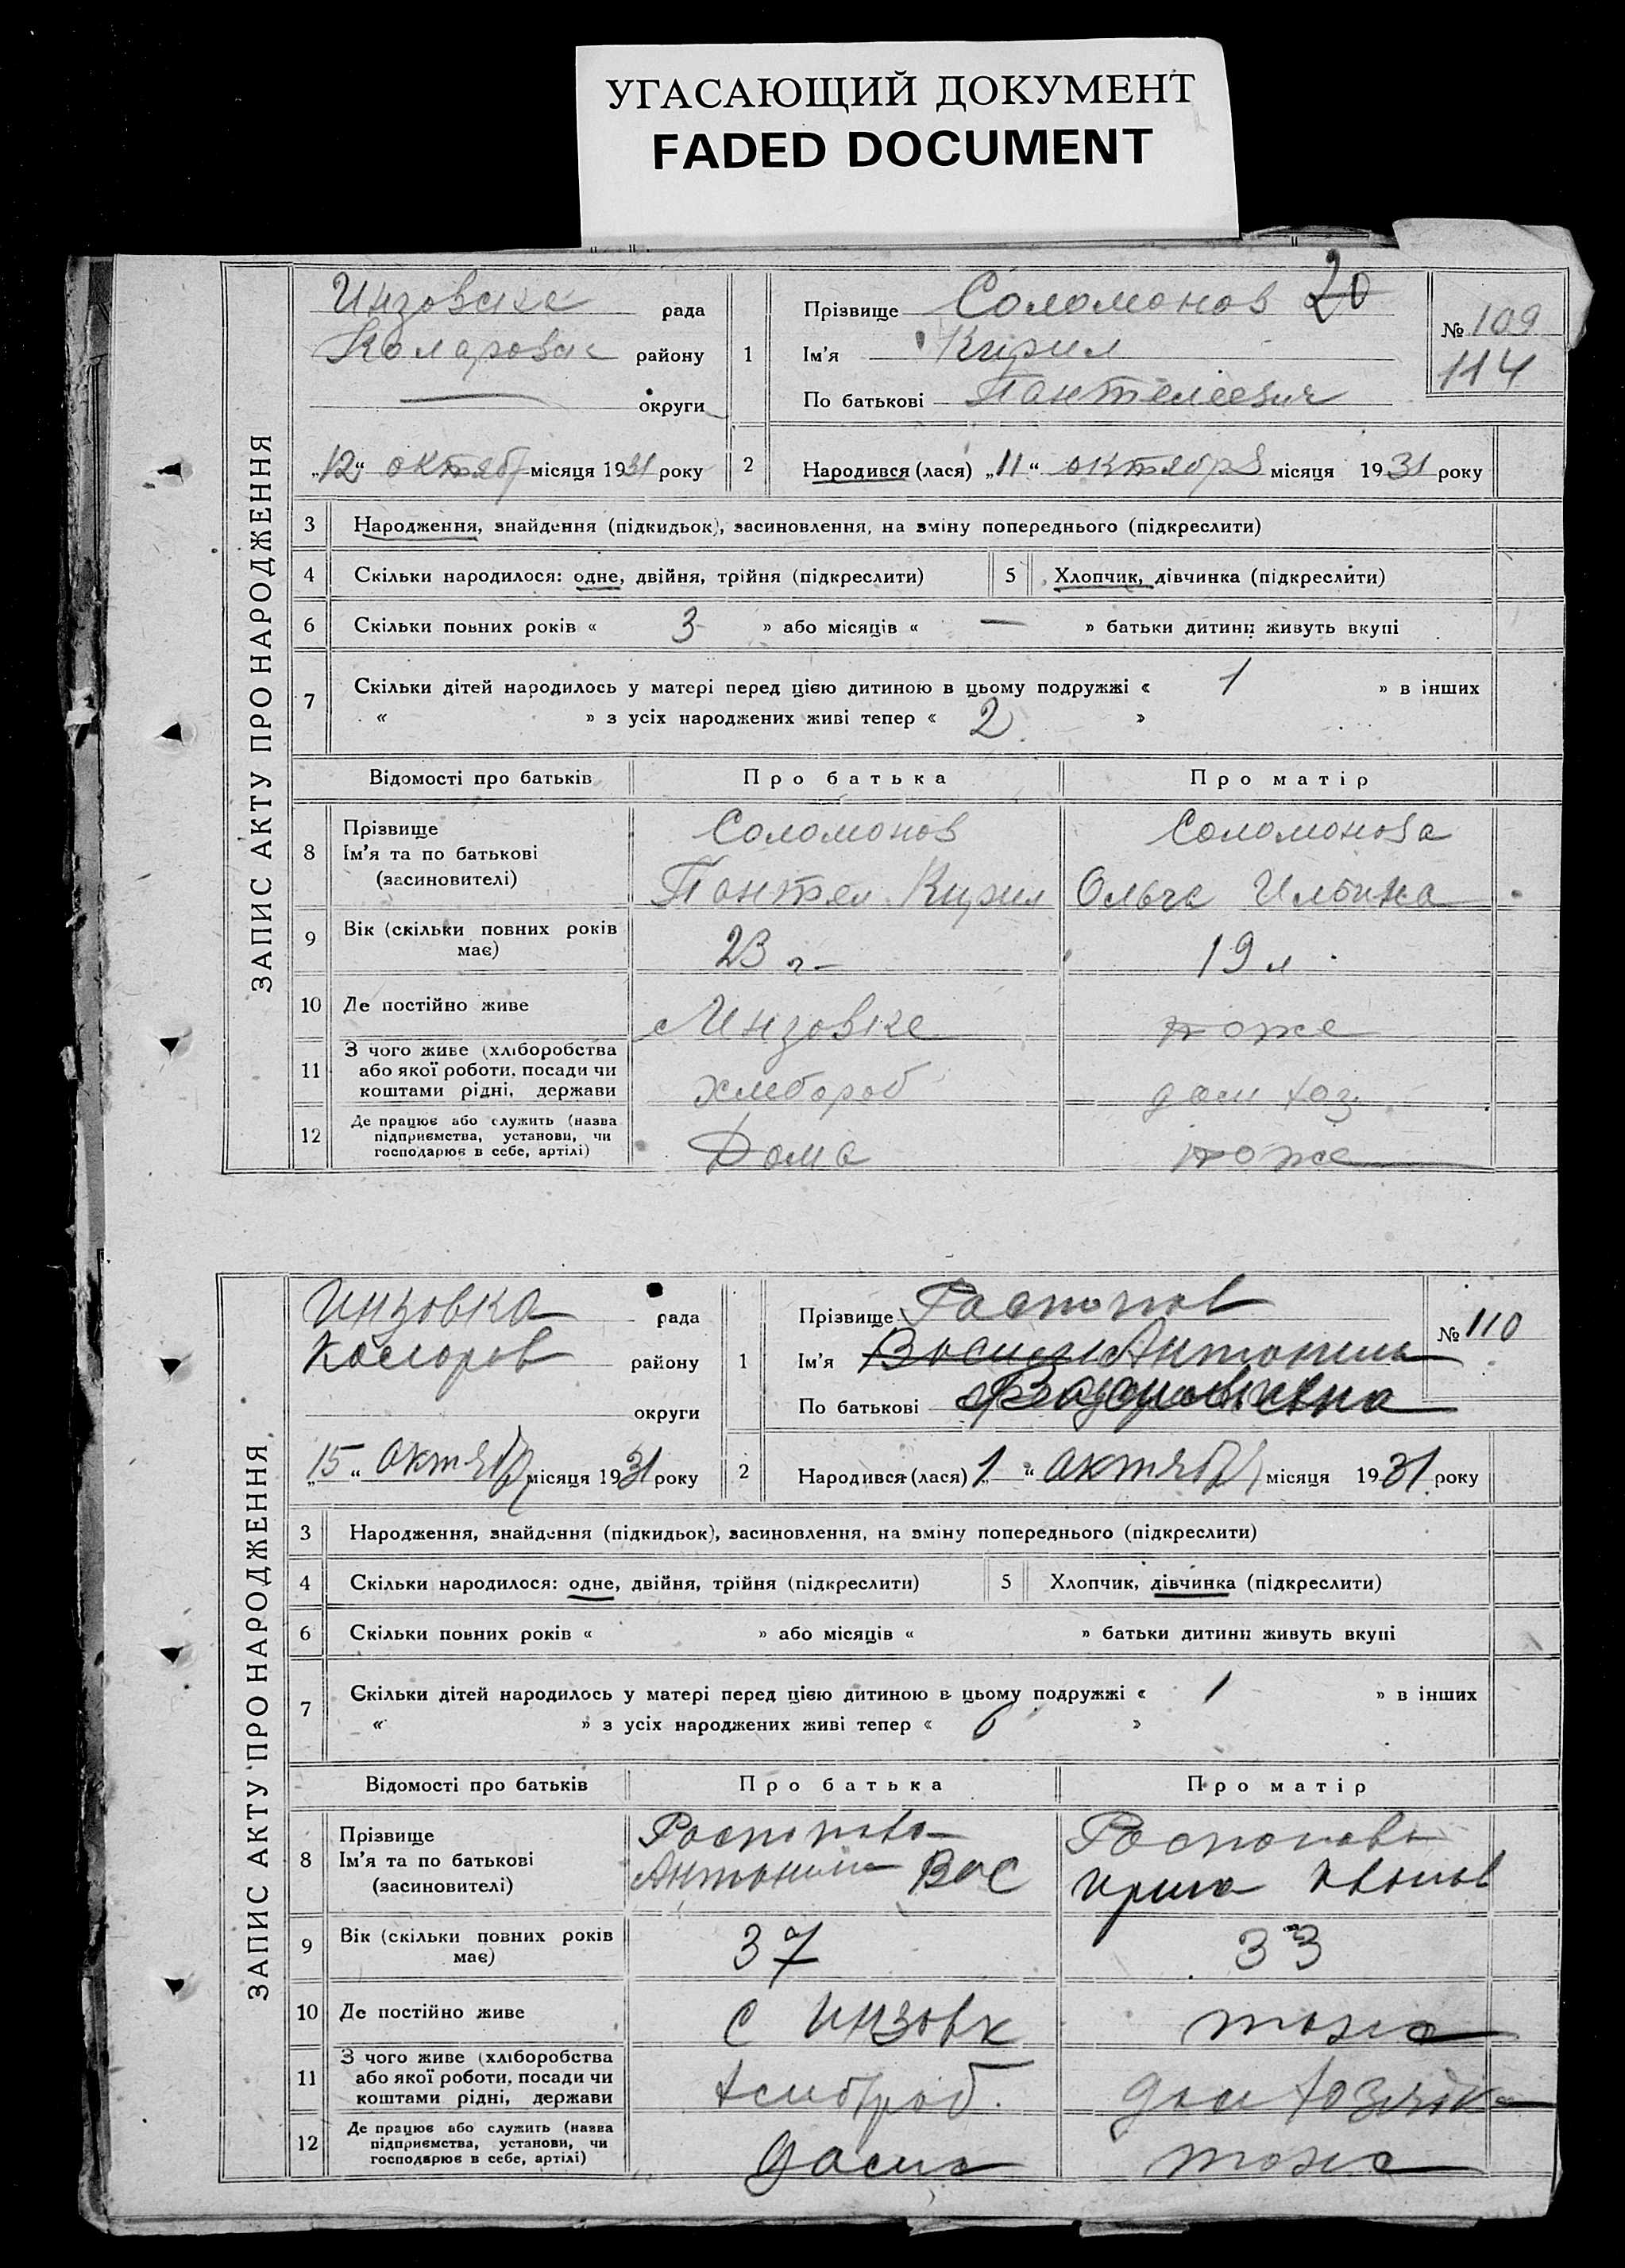 УГАСАЮЩИЙ ДОКУМЕНТ
FADED DOCUMENT
ЗАПИС АКТУ ПРО НАРОДЖЕННЯ
Инзовске рада
Коларовск району
округи
„12“ октябр місяця 1931 року
1 Прізвище Соломонов 20
Ім'я Кирил
По батькові Пантелеевич
№ 109
114
2 Народився (лася) „11“ октября місяця 1931 року
3 Народження, знайдення (підкидьок), засиновлення, на зміну попереднього (підкреслити)
4 Скільки народилося: одне, двійня, трійня (підкреслити) 5 Хлопчик, дівчинка (підкреслити)
6 Скільки повних років « 3 » або місяців « — » батьки дитини живуть вкупі
7 Скільки дітей народилось у матері перед цією дитиною в цьому подружжі « 1 » в інших
« » з усіх народжених живі тепер « 2 »
Відомості про батьків Про батька Про матір
8 Прізвище Соломонов Соломонова
Ім'я та по батькові
(засиновителі) Пантел Кирил Ольга
9 Вік (скільки повних років має) 23 г 19 л
10 Де постійно живе Инзовке тоже
11 З чого живе (хліборобства
або якої роботи, посади чи
коштами рідні, держави хлебороб дом хоз.
12 Де працює або служить (назва
підприємства, установи, чи
господарює в себе, артілі) Дома тоже
ЗАПИС АКТУ ПРО НАРОДЖЕННЯ
Инзовка рада
Коларов району
округи
„15“ октябр місяця 1931 року
1 Прізвище Распопов
Ім'я
По батькові
№ 110
2 Народився (лася) „1“ октябр місяця 1931 року
3 Народження, знайдення (підкидьок), засиновлення, на зміну попереднього (підкреслити)
4 Скільки народилося: одне, двійня, трійня (підкреслити) 5 Хлопчик, дівчинка (підкреслити)
6 Скільки повних років « » або місяців « » батьки дитини живуть вкупі
7 Скільки дітей народилось у матері перед цією дитиною в цьому подружжі « 1 » в інших
« » з усіх народжених живі тепер « »
Відомості про батьків Про батька Про матір
8 Прізвище Распопова
Ім'я та по батькові Вас
(засиновителі) Ирина
9 Вік (скільки повних років має) 37 33
10 Де постійно живе с Инзовк тоже
11 З чого живе (хліборобства
або якої роботи, посади чи
коштами рідні, держави хлебороб. дом
12 Де працює або служить (назва
підприємства, установи, чи
господарює в себе, артілі) дома тоже